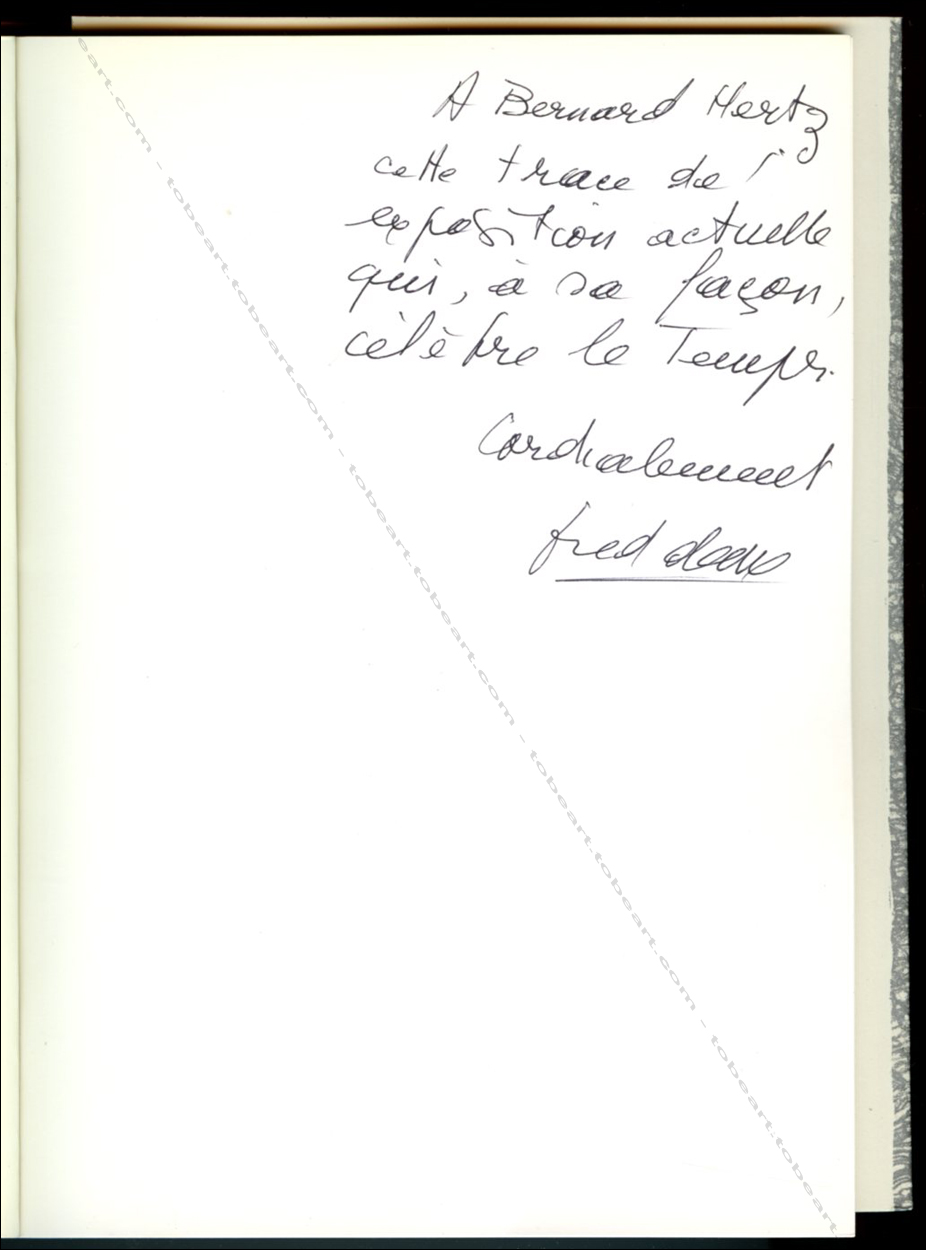 A Bernard Hertz
cette trace de l'
exposition actuelle
qui, à sa façon,
célèbre le Temps.
Cordialement
fred deux
eart.com - tobeart.com - tobeart.com - tobeart.com - tobeart.com - tobeart.com - tobeart.com - tobeart.